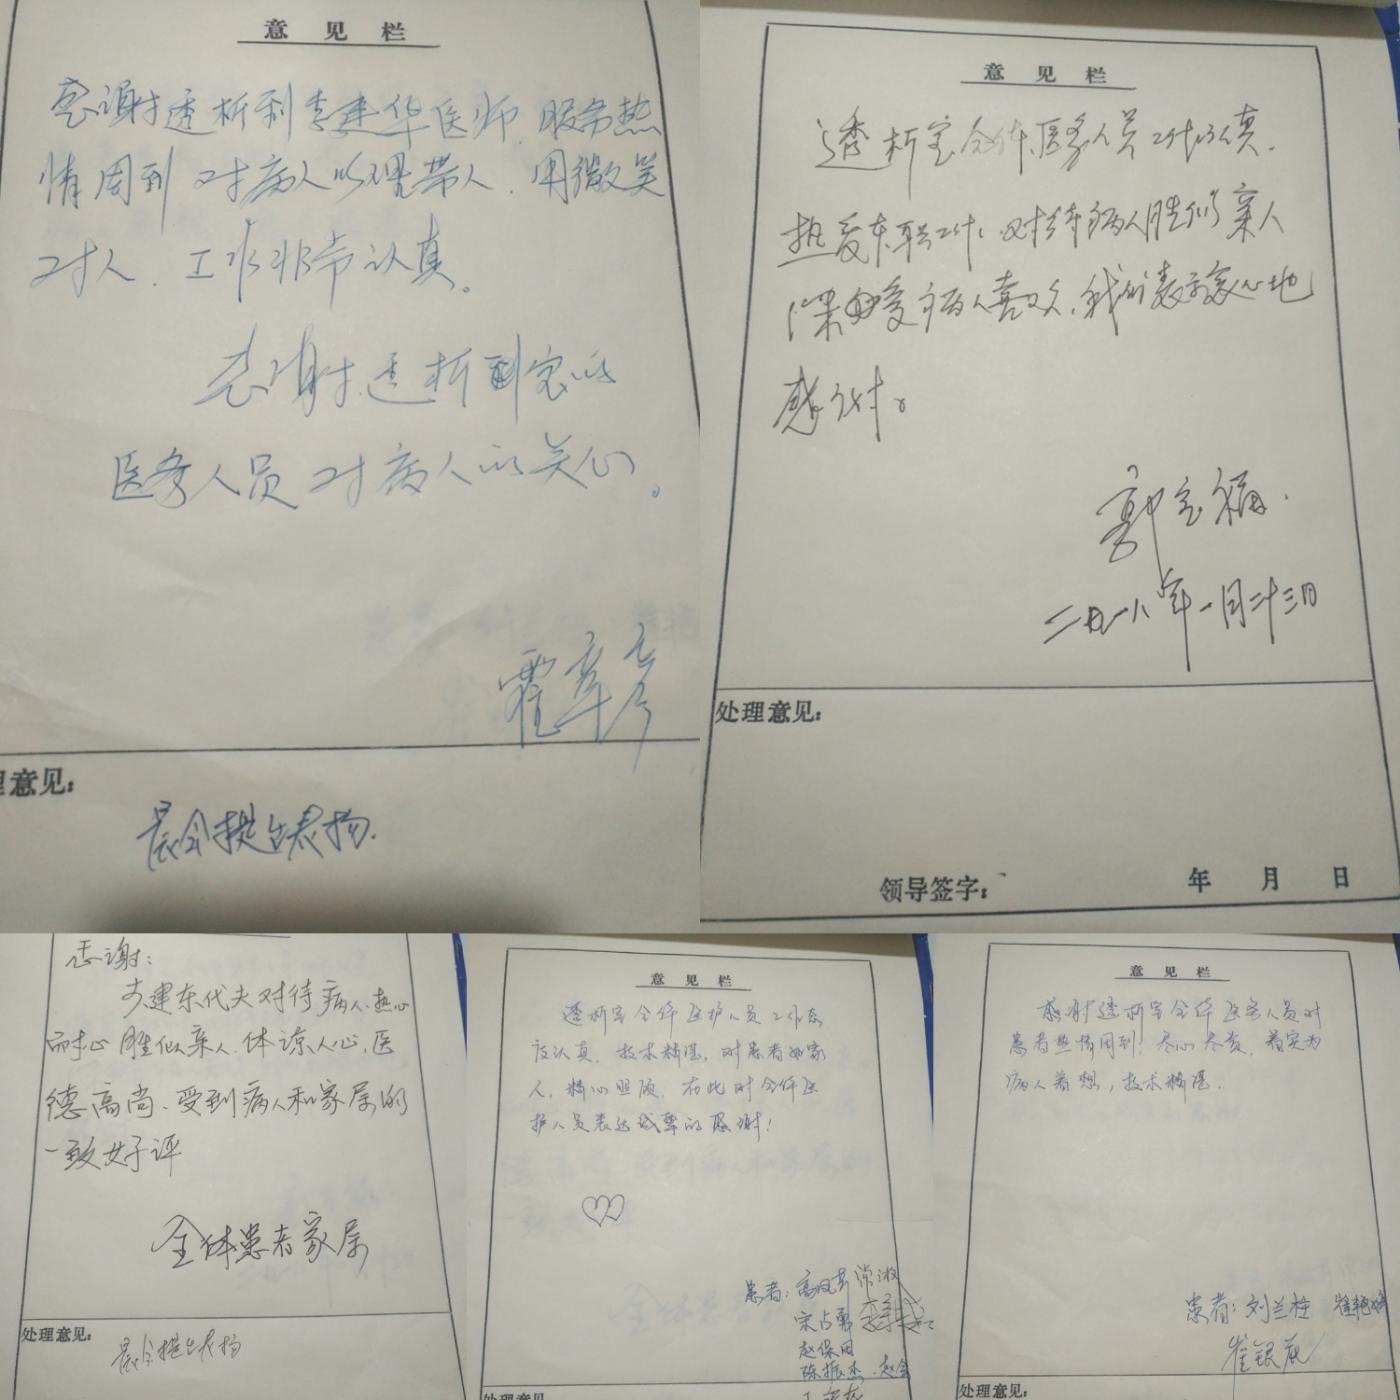 意见栏
感谢透析利李建华医师.服务热
情周到 对病人以理带人.用微笑
对人.工作非常认真。
感谢透析室的
医务人员对病人的关心。
霍章彦
理意见:
晨会提出表扬.
意见栏
透析室全体医务人员工作认真.
热爱本职工作,对待病人胜似亲人
深受病人喜欢,我们表示衷心地
感谢。
郭宝福.
二九一八年一月二十三日
处理意见:
领导签字: 年 月 日
感谢:
建东代夫对待病人热心
而耐心胜似亲人.体谅人心.医
德高尚.受到病人和家属的
一致好评
全体患者家属
处理意见:
晨会提出表扬
意见栏
透析室全体医护人员工作态
度认真,技术精湛,对患者如家
人,精心照顾,在此对全体医
护人员表达诚挚的感谢!
患者:高凤英 常淑
宋占勇
赵保田
陈振杰.赵金
处理意见:
意见栏
感谢透析室全体医务人员对
患者热情周到,尽心尽责,着实为
病人着想,技术精湛.
患者:刘兰柱 崔艳婷
崔银凤
处理意见: